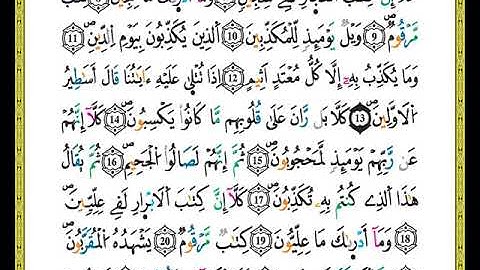 مَّرْقُومٞ ۝9 وَيْلٞ يَوْمَئِذٖ لِّلْمُكَذِّبِينَ ۝10 اَ۬لذِينَ يُكَذِّبُونَ بِيَوْمِ اِ۬لدِّينِ ۝11
وَمَا يُكَذِّبُ بِهِۦٓ إِلَّا كُلُّ مُعْتَدٍ اَثِيمٍ ۝12 اِذَا تُتْلَىٰ عَلَيْهِ ءَايَٰتُنَا قَالَ أَسَٰطِيرُ
اُ۬لَاوَّلِينَ ۝13 كَلَّا بَل رَّانَ عَلَىٰ قُلُوبِهِم مَّا كَانُواْ يَكْسِبُونَ ۝14 كَلَّآ إِنَّهُمْ
عَن رَّبِّهِمْ يَوْمَئِذٖ لَّمَحْجُوبُونَ ۝15 ثُمَّ إِنَّهُمْ لَصَالُواْ اُ۬لْجَحِيمِ ۝16 ثُمَّ يُقَالُ
هَٰذَا اَ۬لذِے كُنتُم بِهِۦ تُكَذِّبُونَ ۝17 كَلَّآ إِنَّ كِتَٰبَ اَ۬لَابْر۪ارِ لَفِے عِلِّيِّينَ
۝18 وَمَآ أَدْر۪ىٰكَ مَا عِلِّيُّونَ ۝19 كِتَٰبٞ مَّرْقُومٞ ۝20 يَشْهَدُهُ اُ۬لْمُقَرَّبُونَ